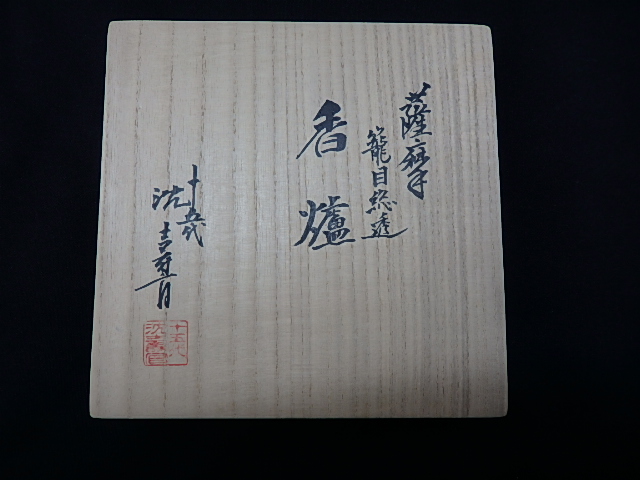 薩摩
籠目総透
香爐
十五代
沈壽官
十五代
沈壽官